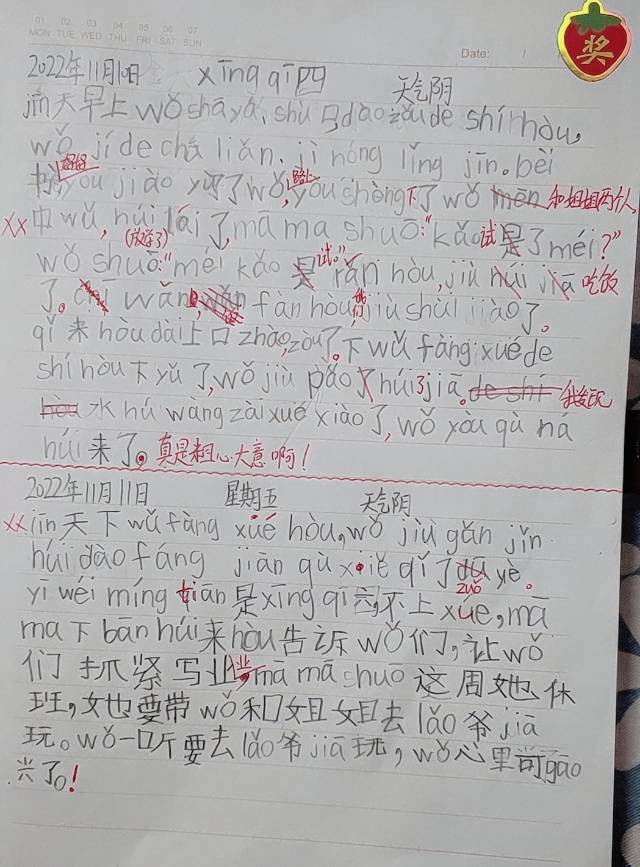 01 02 03 04 05 06 07
MON TUE WED THU FRI SAT SUN
Date: / /
奖
2022年11月10日 xīng qī四 天气阴
jīn天早上wǒ shā yá, shù 口 dào zǒu de shí hòu,
wǒ jí de chā liǎn. jì nóng lǐng jīn. bèi
yòu jiào 了wǒ, 路上 yòu shòng 下了wǒ mēn 和姐姐两个人
xx 中wǔ, húi lái 了, mā ma shuō:"kǎo试是了méi?"
(放学了)
wǒ shuō:"méi kǎo 是试。" rǎn hòu, jiù húi jiā 吃饭
了。 wǎn fàn hòu 我们 jiù shùi jiào了。
qǐ 来 hòu dài 上口 zhào, zǒu了。下wǔ fàng xué de
shí hòu 下yǔ了, wǒ jiù pǎo了húi了jiā。de shí 我发现
hòu 水hú wàng zài xué xiào了, wǒ yòu qù ná
húi来了。真是粗心大意啊!
2022年11月11日 星期五 天气阴
xx jīn天下wǔ fàng xué hòu, wǒ jiù gǎn jǐn
húi dào fáng jiān qù xiě qǐ了zuò yè。
yī wéi míng tiān 是xīng qī六,不上xue, mā
ma 下bān húi来hòu告诉wǒ们,让wǒ
们抓紧写业作mā mā shuō 这周她休
班,她也要带wǒ和姐姐去lǎo爷jiā
玩。wǒ一听要去lǎo爷jiā玩,wǒ心里可gāo
兴了。!